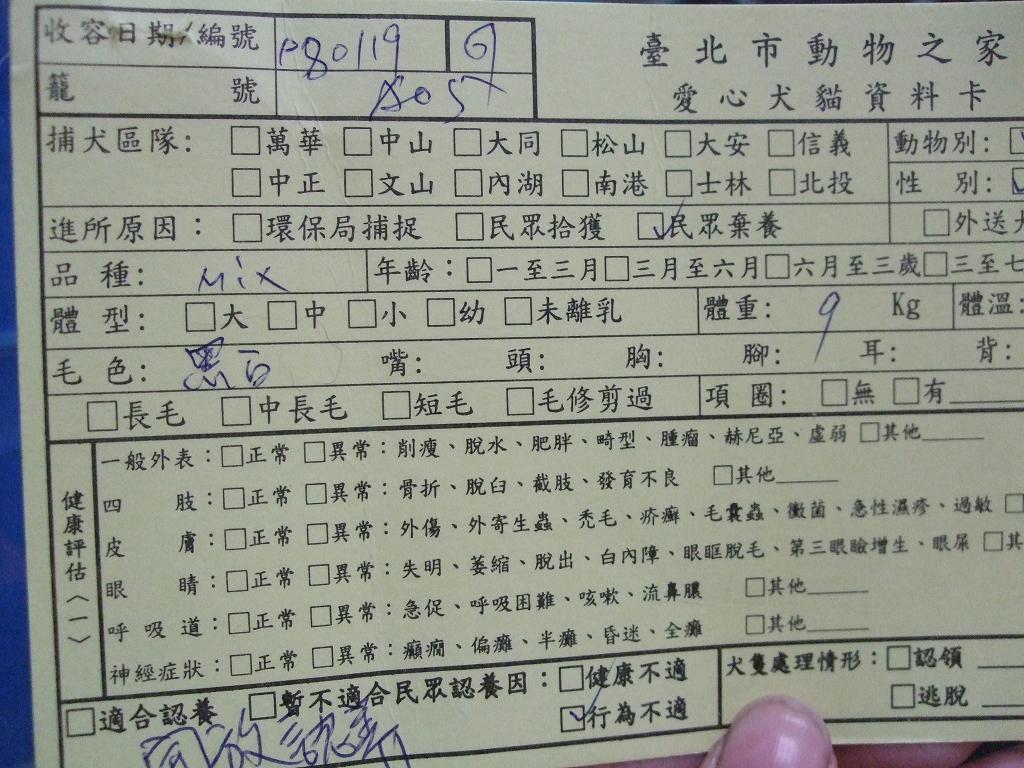 收容日期/編號 P80119 臺北市動物之家
籠 號 A05 愛心犬貓資料卡
捕犬區隊: □萬華 □中山 □大同 □松山 □大安 □信義 動物別:
□中正 □文山 □內湖 □南港 □士林 □北投 性 別:
進所原因: □環保局捕捉 □民眾拾獲 ☑民眾棄養 □外送犬
品 種: Mix 年齡: □一至三月 □三月至六月 □六月至三歲 □三至七
體 型: □大 □中 □小 □幼 □未離乳 體重: 9 Kg 體溫:
毛 色: 黑白 嘴: 頭: 胸: 腳: 耳: 背:
□長毛 □中長毛 □短毛 □毛修剪過 項 圈: □無 □有
健康評估(一)
一般外表: □正常 □異常: 削瘦、脫水、肥胖、畸型、腫瘤、赫尼亞、虛弱 □其他
四 肢: □正常 □異常: 骨折、脫臼、截肢、發育不良 □其他
皮 膚: □正常 □異常: 外傷、外寄生蟲、禿毛、疥癬、毛囊蟲、黴菌、急性濕疹、過敏 □
眼 睛: □正常 □異常: 失明、萎縮、脫出、白內障、眼眶脫毛、第三眼瞼增生、眼屎 □其
呼吸道: □正常 □異常: 急促、呼吸困難、咳嗽、流鼻膿 □其他
神經症狀: □正常 □異常: 癲癇、偏癱、半癱、昏迷、全癱 □其他
□適合認養 □暫不適合民眾認養因: □健康不適 犬隻處理情形: □認領
☑行為不適 □逃脫
開放認養